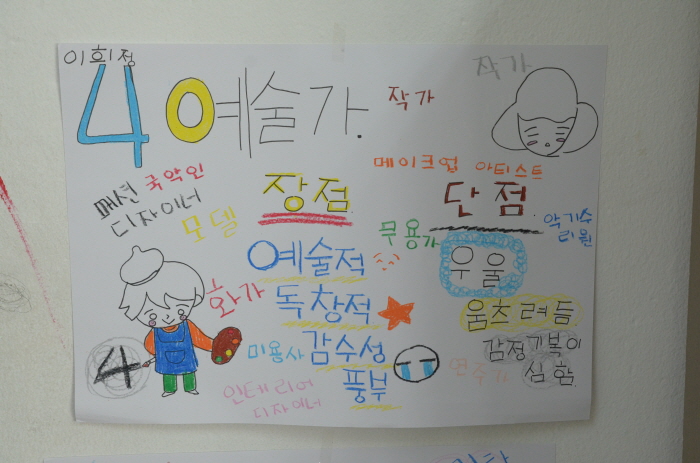 이희정
4 예술가.
작가
작가
메이크업 아티스트
패션
디자이너
국악인
모델
장점
단점.
악기수
리원
무용가
예술적
우울
화가
독창적
움츠려듬.
4
미용사
감수성
풍부
감정기복이
심함.
연주가
인테리어
디자이너